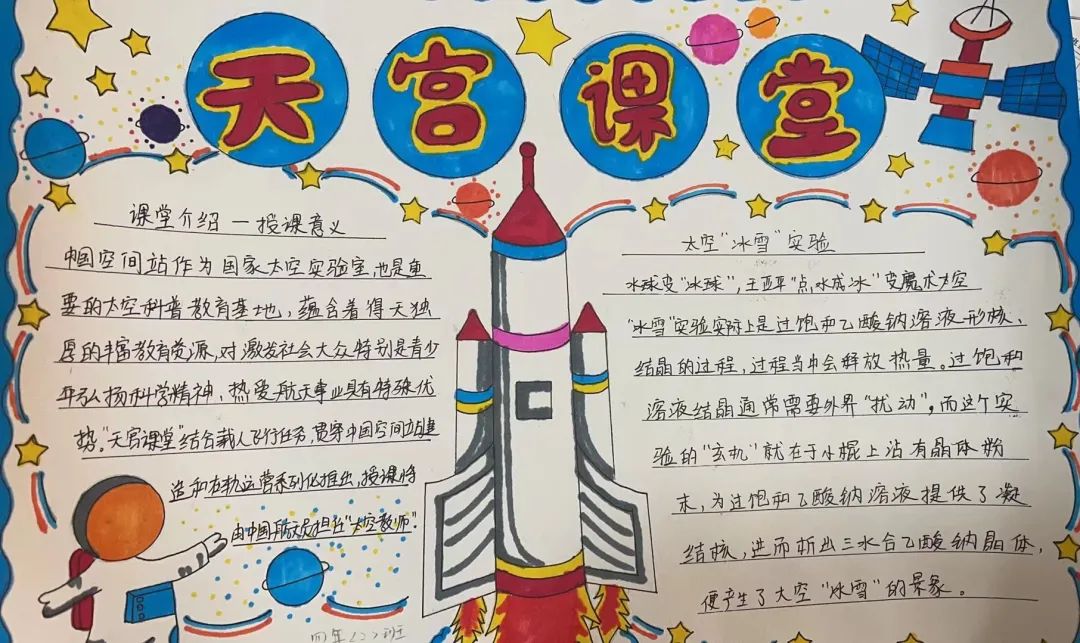 天宫课堂
课堂介绍—授课意义
中国空间站作为国家太空实验室,也是重
要的太空科普教育基地,蕴含着得天独
厚的丰富教育资源,对激发社会大众特别是青少
年弘扬科学精神、热爱航天事业具有特殊优
势。"天宫课堂"结合载人飞行任务,贯穿中国空间站建
造和在轨运营系列化推出,授课将
由中国航天员担任"太空教师".
太空"冰雪"实验
水球变"冰球",王亚平"点水成冰"变魔术太空
"冰雪"实验实际上是过饱和乙酸钠溶液形核、
结晶的过程,过程当中会释放热量。过饱和
溶液结晶通常需要外界"扰动",而这个实
验的"玄机"就在于小棍上沾有晶体粉
末,为过饱和乙酸钠溶液提供了凝
结核,进而析出三水合乙酸钠晶体,
便产生了太空"冰雪"的景象。
四年(二)班